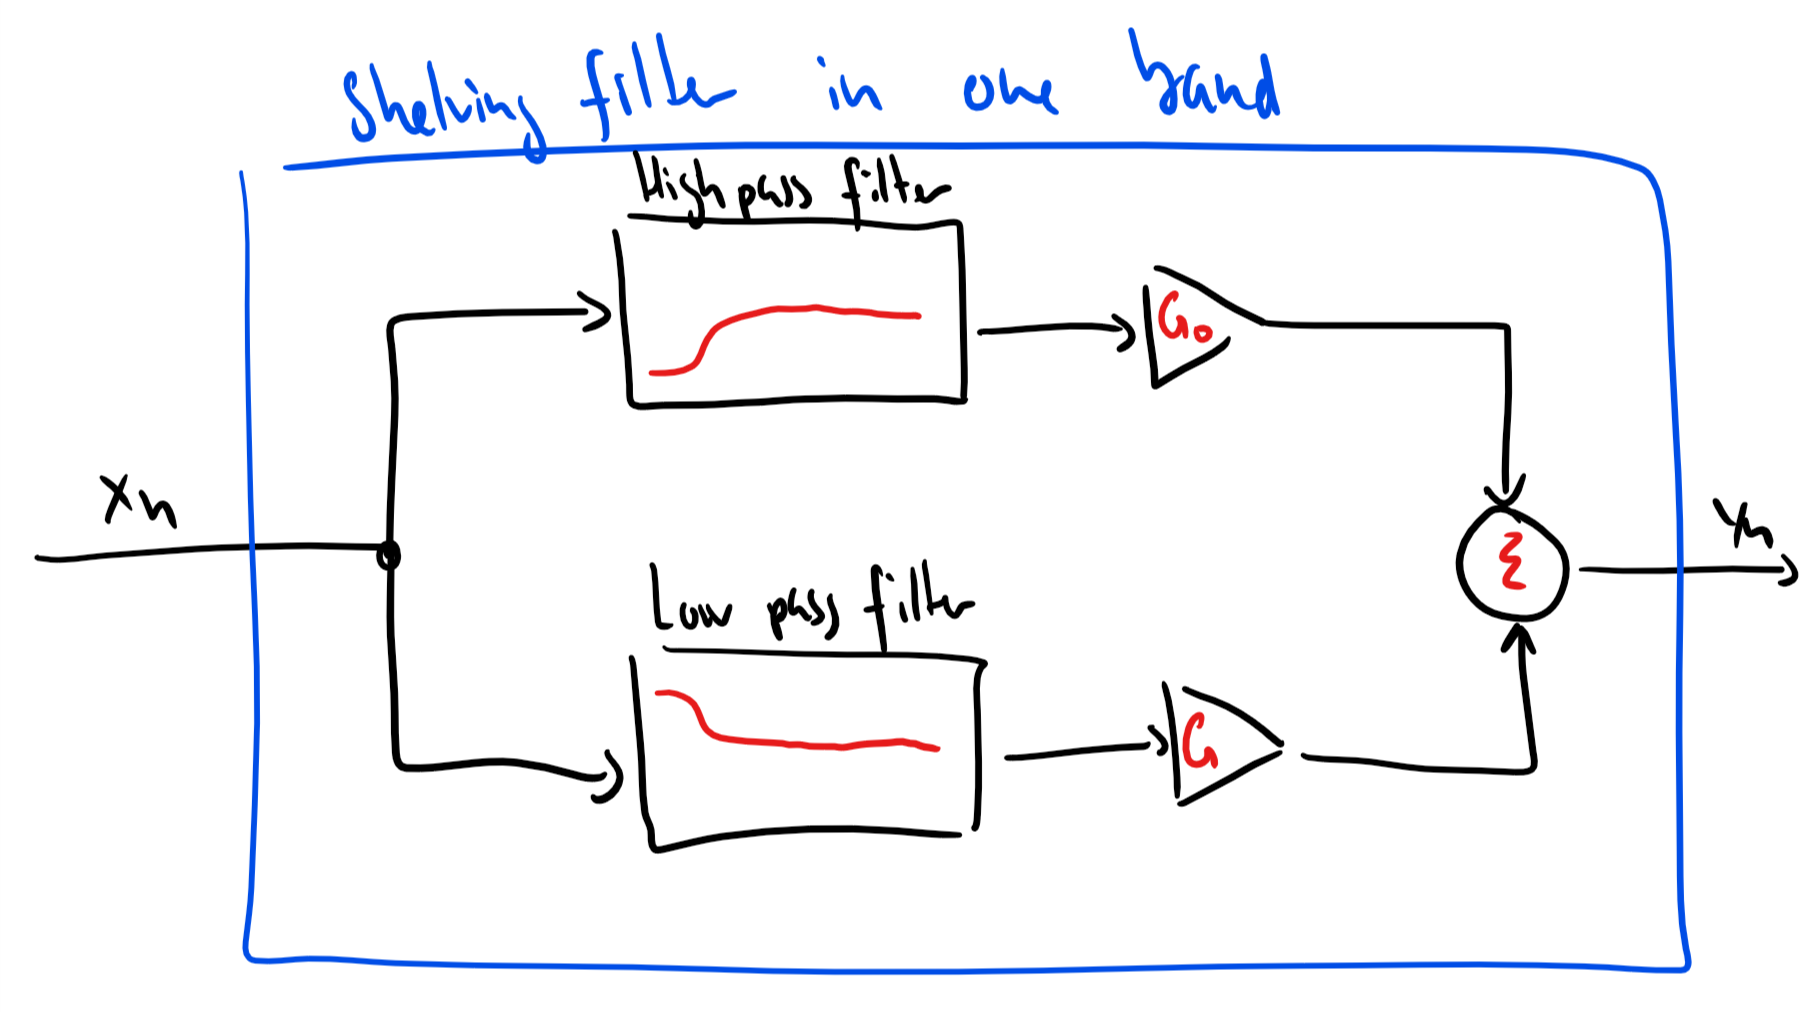 Shelving filter in one band
High pass filter
G0
Xn
Yn
Σ
Low pass filter
G